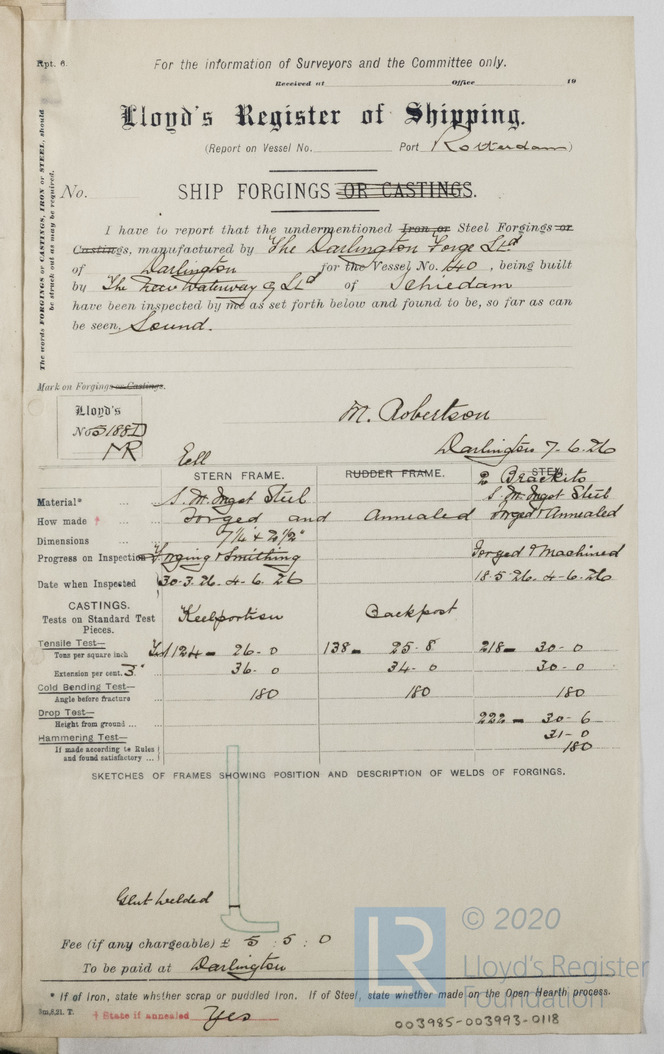 Rpt. 6.
For the information of Surveyors and the Committee only.
Received at Office 19
Lloyd's Register of Shipping.
(Report on Vessel No. Port Rotterdam)
The words FORGINGS or CASTINGS, IRON or STEEL, should
be struck out as may be required.
No. SHIP FORGINGS OR CASTINGS.
I have to report that the undermentioned Iron or Steel Forgings or
Castings, manufactured by The Darlington Forge Ltd
of Darlington for the Vessel No. 140, being built
by The New Waterway Ltd of Schiedam
have been inspected by me as set forth below and found to be, so far as can
be seen, Sound.
Mark on Forgings or Castings.
Lloyd's
No 3188D
MR
M. Robertson
Darlington 7-6.26
STERN FRAME. RUDDER FRAME. STEM.
2 Brackets
Material* S. M. Ingot Steel S. M. Ingot Steel
How made † Forged and Annealed Forged & Annealed
Dimensions 7¼ x 2½"
Progress on Inspection Forging & Smithing Forged & Machined
Date when Inspected 30-3.26. 4-6.26 18-5-26. 4-6.26
CASTINGS.
Tests on Standard Test
Pieces.
Keelportion Backpost
Tensile Test—
Tons per square inch 124 - 26-0 138 - 25-8 218 - 30-0
Extension per cent. 3" 36-0 34-0 30-0
Cold Bending Test—
Angle before fracture 180 180 180
Drop Test—
Height from ground 222 - 30-6
Hammering Test— 31-0
If made according to Rules
and found satisfactory 180
SKETCHES OF FRAMES SHOWING POSITION AND DESCRIPTION OF WELDS OF FORGINGS.
Glut welded
Fee (if any chargeable) £ 5 : 5 : 0
To be paid at Darlington
* If of Iron, state whether scrap or puddled Iron. If of Steel, state whether made on the Open Hearth process.
† State if annealed Yes
003985-003993-0118
LR
© 2020
Lloyd's Register
Foundation